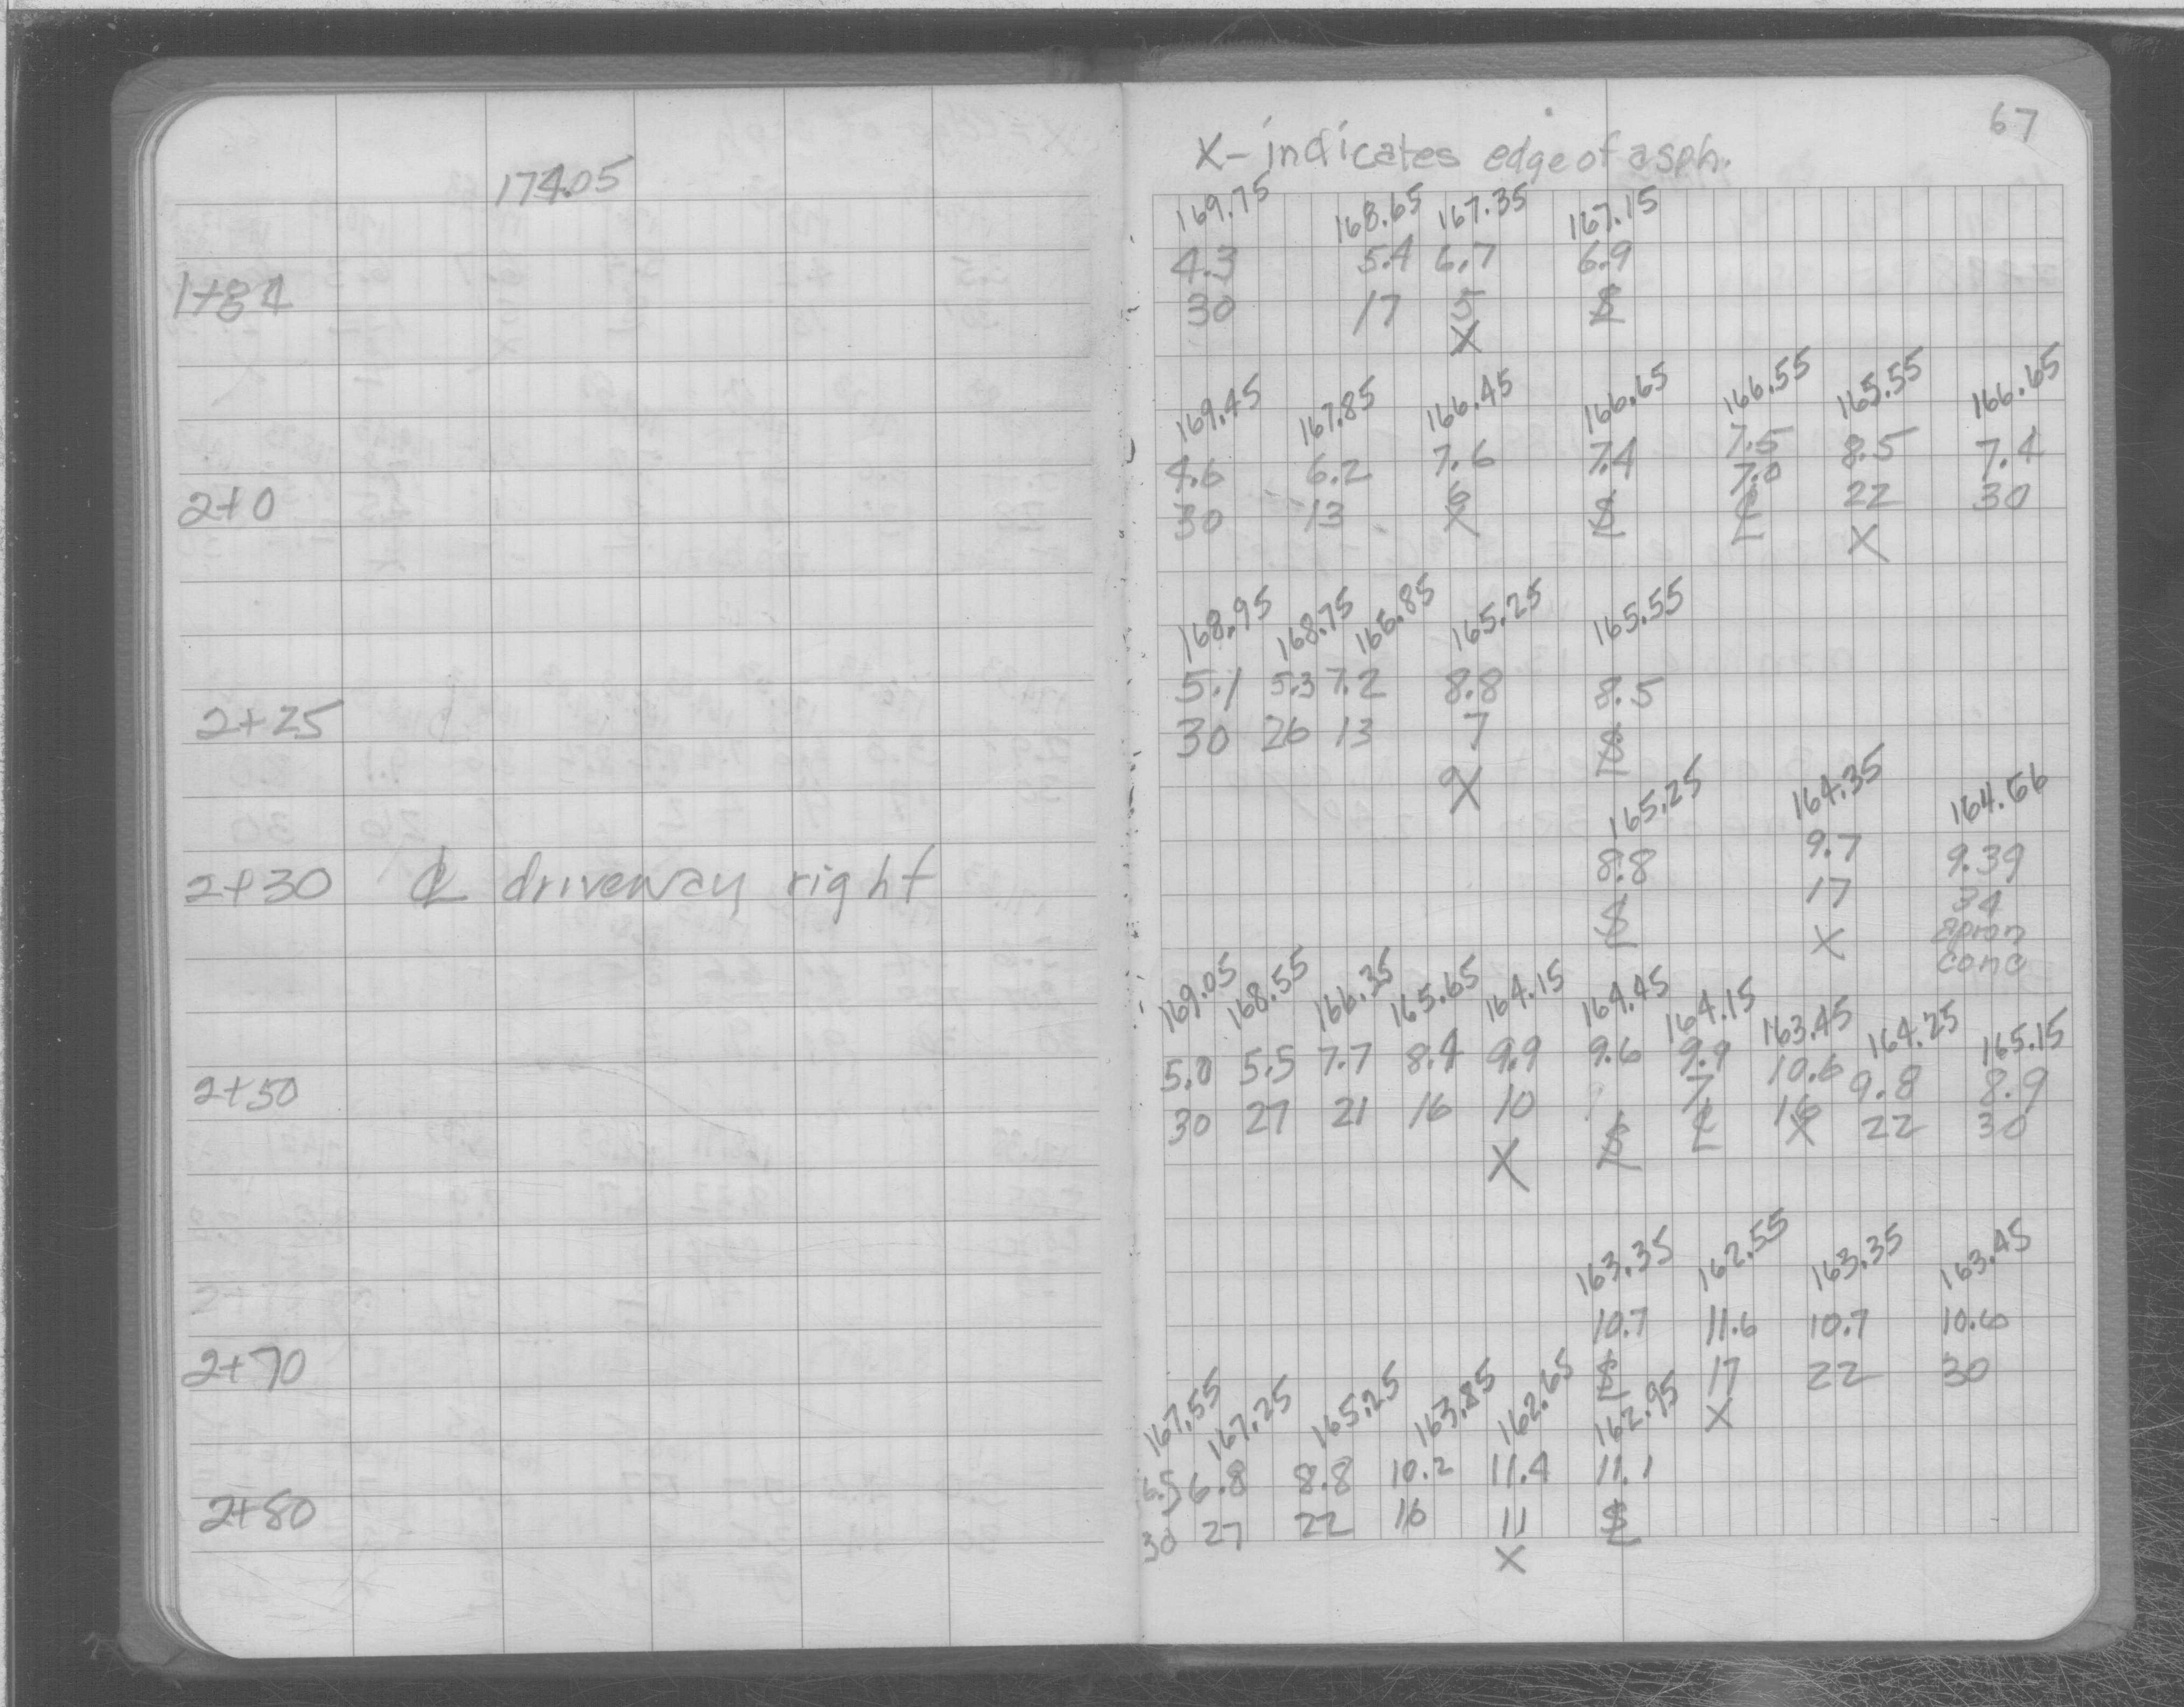 174.05
1+84
2+0
2+25
2+30 ℄ driveway right
2+50
2+70
2+80
67
X- indicates edge of asph.
169.75 168.65 167.35 167.15
4.3 5.4 6.7 6.9
30 17 5
X
169.45 167.85 166.45 166.65 166.55 165.55 166.65
4.6 6.2 7.6 7.4 7.5 8.5 7.4
30 13 6 7.0 22 30
X ℄ X
168.95 168.75 166.85 165.25 165.55
5.1 5.3 7.2 8.8 8.5
30 26 13 7
X
165.25 164.35 164.66
8.8 9.7 9.39
17 34
X apron
conc
169.05 168.55 166.35 165.65 164.15 164.45 164.15 163.45 164.25 165.15
5.0 5.5 7.7 8.4 9.9 9.6 9.9 10.6 9.8 8.9
30 27 21 16 10 7 16 22 30
X ℄ X
163.35 162.55 163.35 163.45
10.7 11.6 10.7 10.6
17 22 30
X
167.55 167.25 165.25 163.85 162.65 162.95
6.5 6.8 8.8 10.2 11.4 11.1
30 27 22 16 11
X